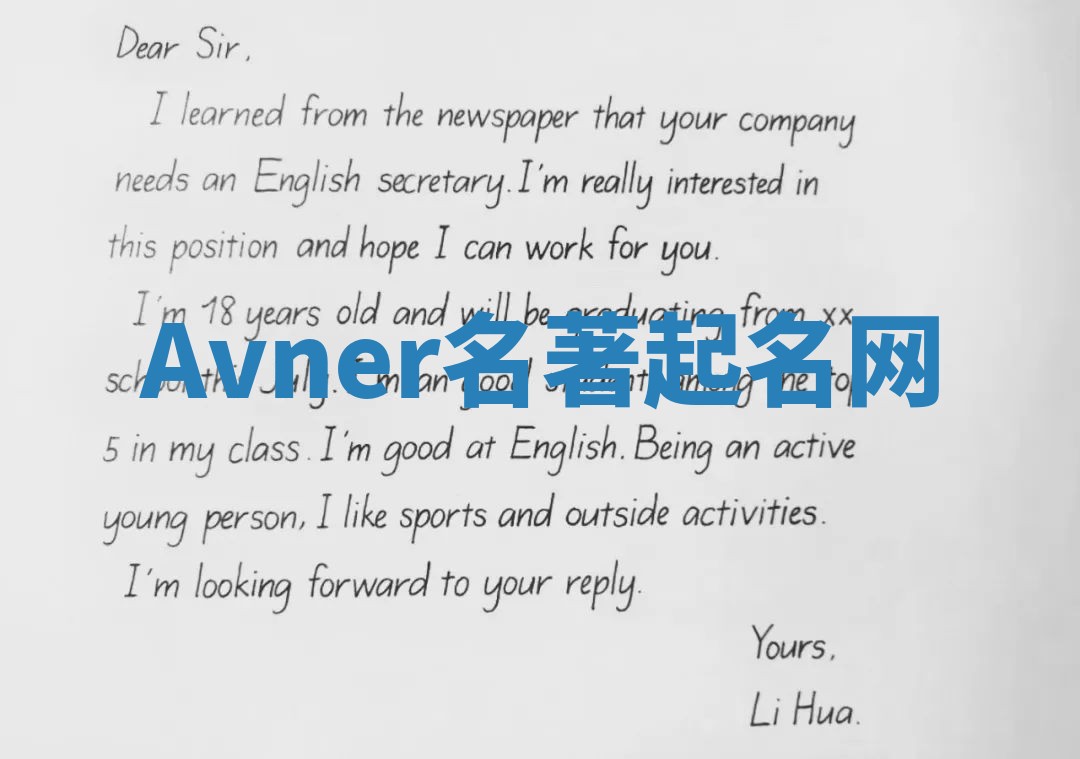 Dear Sir,
I learned from the newspaper that your company
needs an English secretary. I'm really interested in
this position and hope I can work for you.
I'm 18 years old and will be graduating from xx
school this July. I'm an good student, among the top
Avner名著起名网
5 in my class. I'm good at English. Being an active
young person, I like sports and outside activities.
I'm looking forward to your reply.
Yours,
Li Hua.